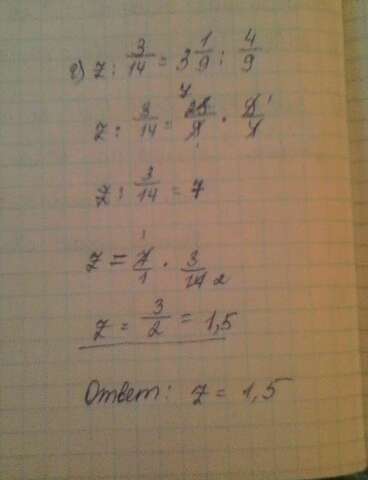 г) z : 3/14 = 3 1/9 : 4/9
z : 3/14 = 28/9 · 9/4
z : 3/14 = 7
z = 7/1 · 3/14
z = 3/2 = 1,5
Ответ: z = 1,5